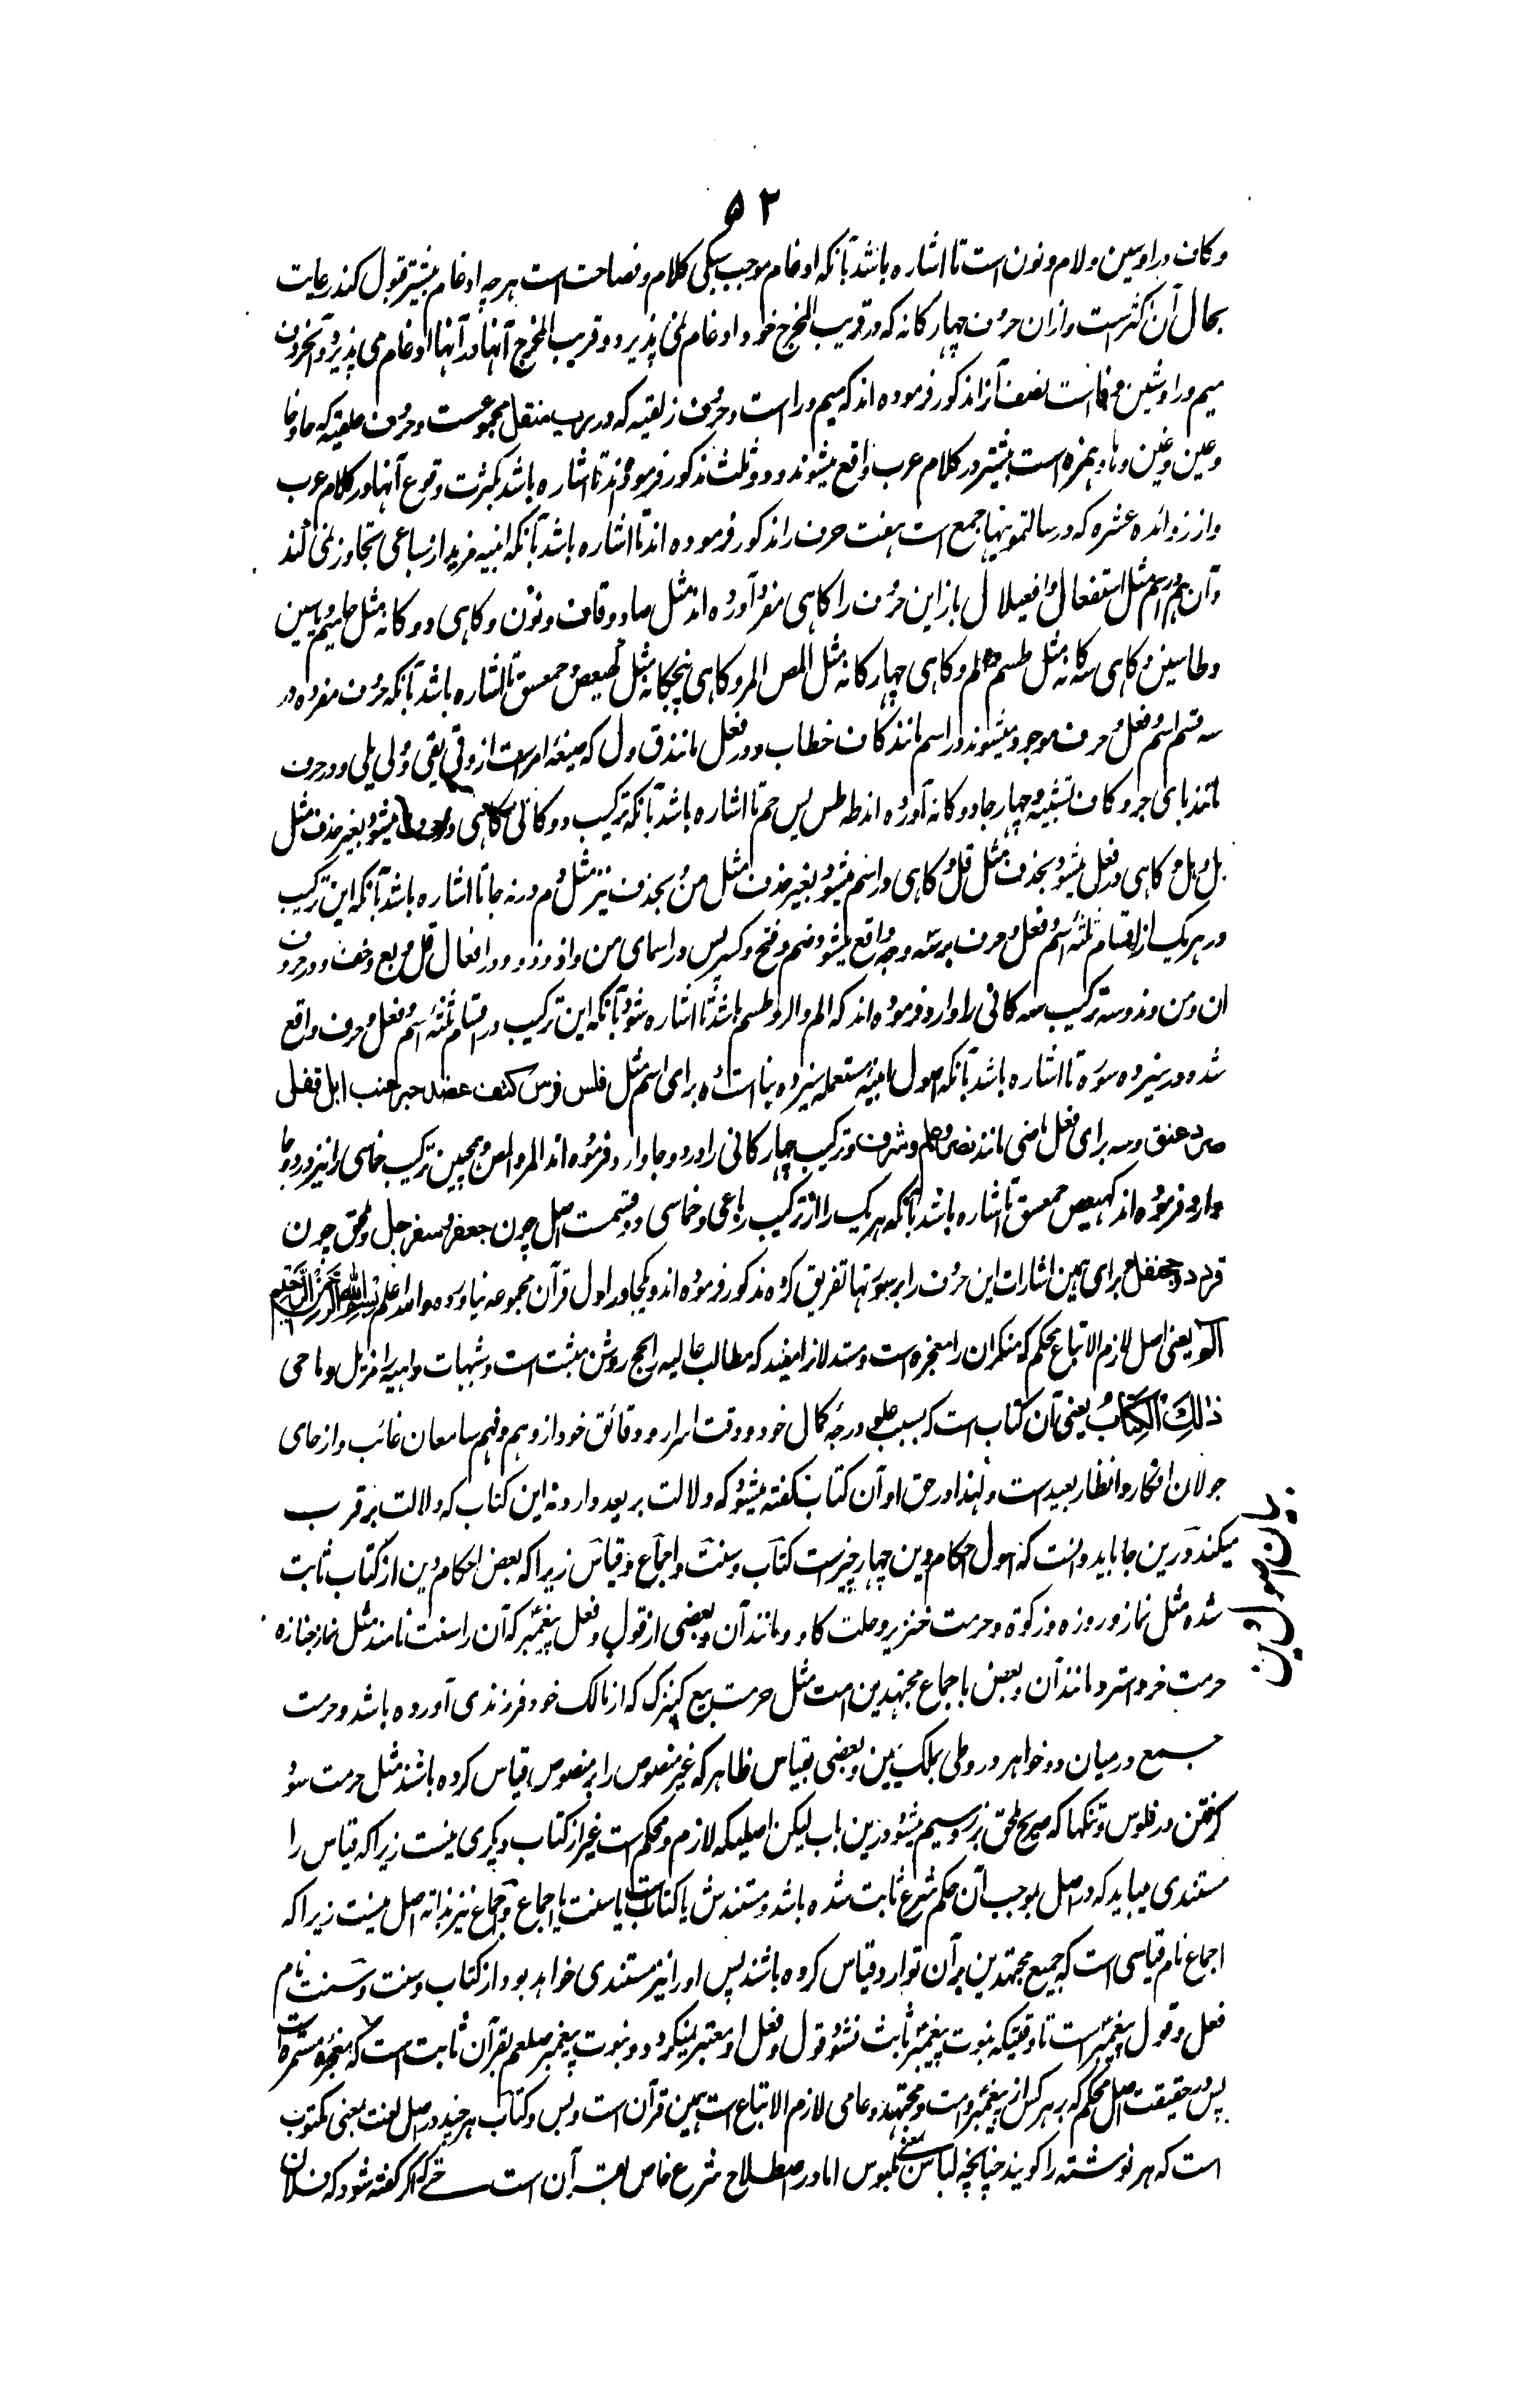 ۵۲
وکاف و را و سین و لام و نون است تا اشاره باشد بآنکه ادغام موجب سبکی کلام و فصاحت است هر چه ادغام بیشتر قبول کند رعایت
بحال آن کثرست و ازان حروف چهارگانه که در قریب المخرج خود ادغام نمی پذیرد و قریب المخرج آنها در آنها ادغام می پذیرد و آنحروف
میم و را و شین و فاست نصف آنرا مذکور فرموده اند که میم و را است و حروف زلقیه که در رب منقل مجموعست و حروف حلقیه که حا و خا
و عین و غین و ها و همزه است بیشتر در کلام عرب واقع میشوند و دو ثلث مذکور فرمودند تا اشاره باشد بکثرت وقوع آنها در کلام عرب
و از زوائد عشره که در سالتمونیها جمع است هفت حرف را مذکور فرموده اند تا اشاره باشد بآنکه ابنیه مزید از سباعی تجاوز نمی کند
و آن هم در اسم مثل استفعال و افعیلال باز این حروف را گاهی مفرد آورده اند مثل صاد و قاف و نون و گاهی دوگانه مثل حامیم و یاسین
و طاسین و گاهی سه گانه مثل طسم و الم و گاهی چهارگانه مثل المص المر و گاهی پنجگانه مثل کهیعص و حمعسق تا اشاره باشد بآنکه حروف مفرده در
سه قسم اسم و فعل و حرف موجود میشوند در اسم مانند کاف خطاب و در فعل مانند ق ول که صیغه امر است از وقی یقی و ولی یلی و در حرف
مانند بای جر و کاف تشبیه و چهار جا دوگانه آورده اند طه طس یس حم تا اشاره باشد بآنکه ترکیب دوگانی گاهی در حرف میشود بغیر حذف مثل
بل و هل و گاهی در فعل میشود بحذف مثل قل و گاهی در اسم میشود بغیر حذف مثل من و بحذف نیز مثل دم در نه جا تا اشاره باشد بآنکه این ترکیب
در هر یک از اقسام ثلثه اسم و فعل و حرف بر سه وجه واقع میشود ضم و فتح و کسر پس در اسمای من و اذ و ذو و در افعال قل و بع و خف و در حروف
ان و من و مذ و سه ترکیب سه گانی را وارد فرموده اند که الم و الر و طسم باشد تا اشاره شود بآنکه این ترکیب در اقسام ثلثه اسم و فعل و حرف واقع
شده و در سیزده سوره تا اشاره باشد بآنکه اصول ابنیه مستعمله سیزده بناست ده برای اسم مثل فلس فرس کتف عضد حبر عنب ابل قفل
صرد عنق و سه برای فعل ماضی مانند نصر و علم و شرف و ترکیب چهارگانی را در دو جا وارد فرموده اند المر و المص و همچنین ترکیب خماسی را نیز در دو جا
وارد فرموده اند کهیعص حمعسق تا اشاره باشد بآنکه هر یک را از ترکیب رباعی و خماسی دو قسمت اصل چون جعفر و سفرجل و ملحق چون
قردد و جحنفل برای همین اشارات این حروف را بر سورتها تفریق کرده مذکور فرموده اند و یکجا در اول قرآن مجموعه نیاورده والله اعلم بسم الله الرحمن الرحیم
الم یعنی اصل لازم الاتباع محکم که منکران را معجزه است و مستدلان را مفید که مطالب عالیه را بحج روشن مثبت است و شبهات واهیه را مزیل و ماحی
ذٰلِكَ الْكِتَابُ یعنی آن کتاب است که بسبب علو درجه کمال خود و دقت اسرار و دقائق خود از وهم و فهم سامعان غائب و از جای
جولان افکار و انظار بعید است و لهذا در حق او آن کتاب گفته میشود که دلالت بر بعد دارد نه این کتاب که دلالت بر قرب
میکند و درین جا باید دانست که اصول احکام دین چهار چیزست کتاب و سنت و اجماع و قیاس زیرا که بعض احکام دین از کتاب ثابت
شده مثل نماز و روزه و زکوة و حرمت خنزیر و حلت گاو و مانند آن و بعضی از قول و فعل پیغمبر که آن را سنت نامند مثل نماز جنازه
حرمت خر و استر و مانند آن و بعض باجماع مجتهدین امت مثل حرمت بیع کنیزک که از مالک خود فرزندی آورده باشد و حرمت
جمع درمیان دو خواهر در وطی بملک یمین و بعضی بقیاس ظاهر که غیر منصوص را بر منصوص قیاس کرده باشند مثل حرمت سود
گرفتن در فلوس و تنکها که صریح ملحق بزر و سیم میشود درین باب لیکن اصلیکه لازم و محکم است غیر از کتاب دیگری نیست زیرا که قیاس را
مستندی میباید که در اصل بموجب آن حکم شرع ثابت شده باشد و مستندش یا کتاب است یا سنت یا اجماع و اجماع نیز بذاته اصل نیست زیرا که
اجماع نام قیاسی است که جمیع مجتهدین بر آن توارد قیاس کرده باشند پس او را نیز مستندی خواهد بود از کتاب و سنت و سنت نام
فعل و قول پیغمبرست تا وقتیکه نبوت پیغمبر ثابت نشود قول و فعل او معتبر نمیگردد و نبوت پیغمبر صلعم بقرآن ثابت است که معجزه مستمره است
پس در حقیقت اصل محکم که بر هر کس از پیغمبر و امت و مجتهد و عامی لازم الاتباع است همین قرآن است و بس و کتاب هر چند در اصل لغت بمعنی مکتوب
است که هر نوشته را گویند چنانچه لباس بمعنی ملبوس اما در اصطلاح شرع خاص بقرآن است حتی که اگر گفته شود که فلان
بیان اصول دین